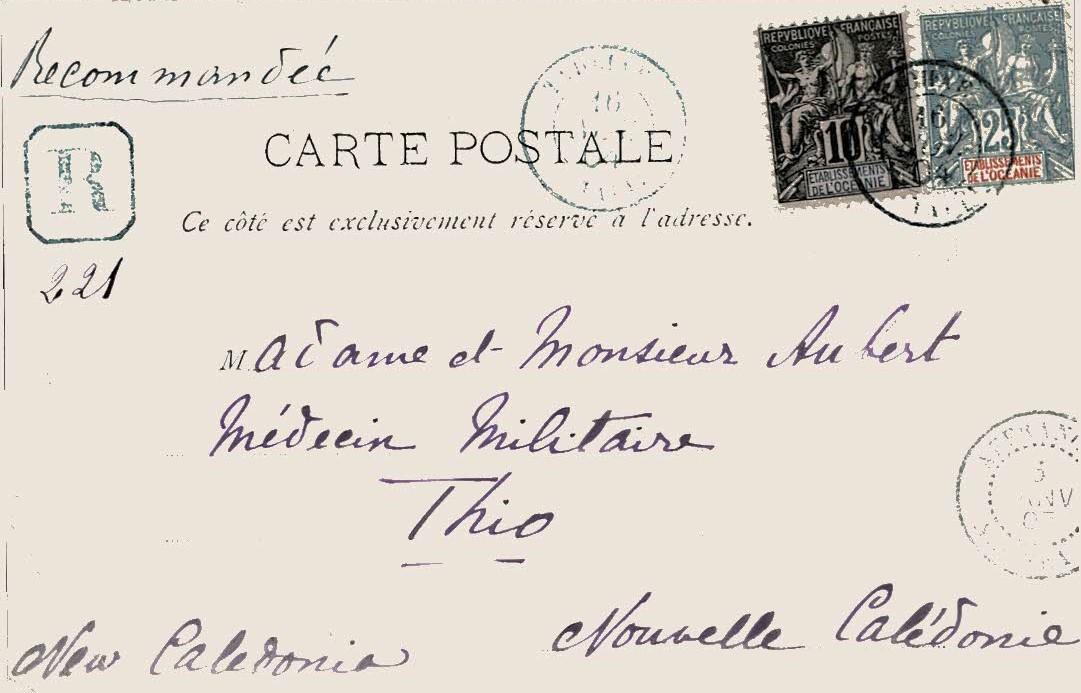 Recommandée
REPVBLIQVE FRANÇAISE
COLONIES POSTES
10
ETABLISSEMENTS
DE L'OCEANIE
REPVBLIQVE FRANÇAISE
COLONIES POSTES
25
ETABLISSEMENTS
DE L'OCEANIE
16
16
R
CARTE POSTALE
Ce côté est exclusivement réservé à l'adresse.
221
Madame et Monsieur Aubert
Médecin Militaire
Thio
New Caledonia
Nouvelle Calédonie